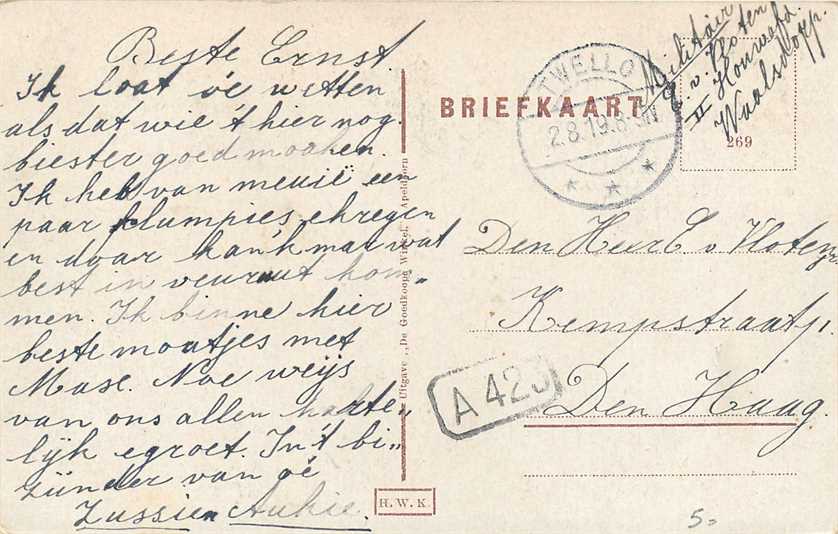 Beste Ernst
Ik loat oe wetten
als dat wie 't hier nog
biester goed moaken.
Ik heb van meuië een
paar klumpies ekregen
en doar kan'k mar wat
best in veuruut kom„
men. Ik binne hier
beste moatjes met
Maxe. Noe weijs
van ons allen harte„
lijk egroet. In 't bi„
zünder van oé
Zussien Aukie.
Uitgave „De Goedkoope Winkel", Apeldoorn
H.W.K.
BRIEFKAART
TWELLO
2.8.19.8-9N
Militair
E. v. Vloten
II Houwefd.
Waalsdorp.
269
Den Heer E v Vloten
Kempstraat
A 425
Den Haag
5.